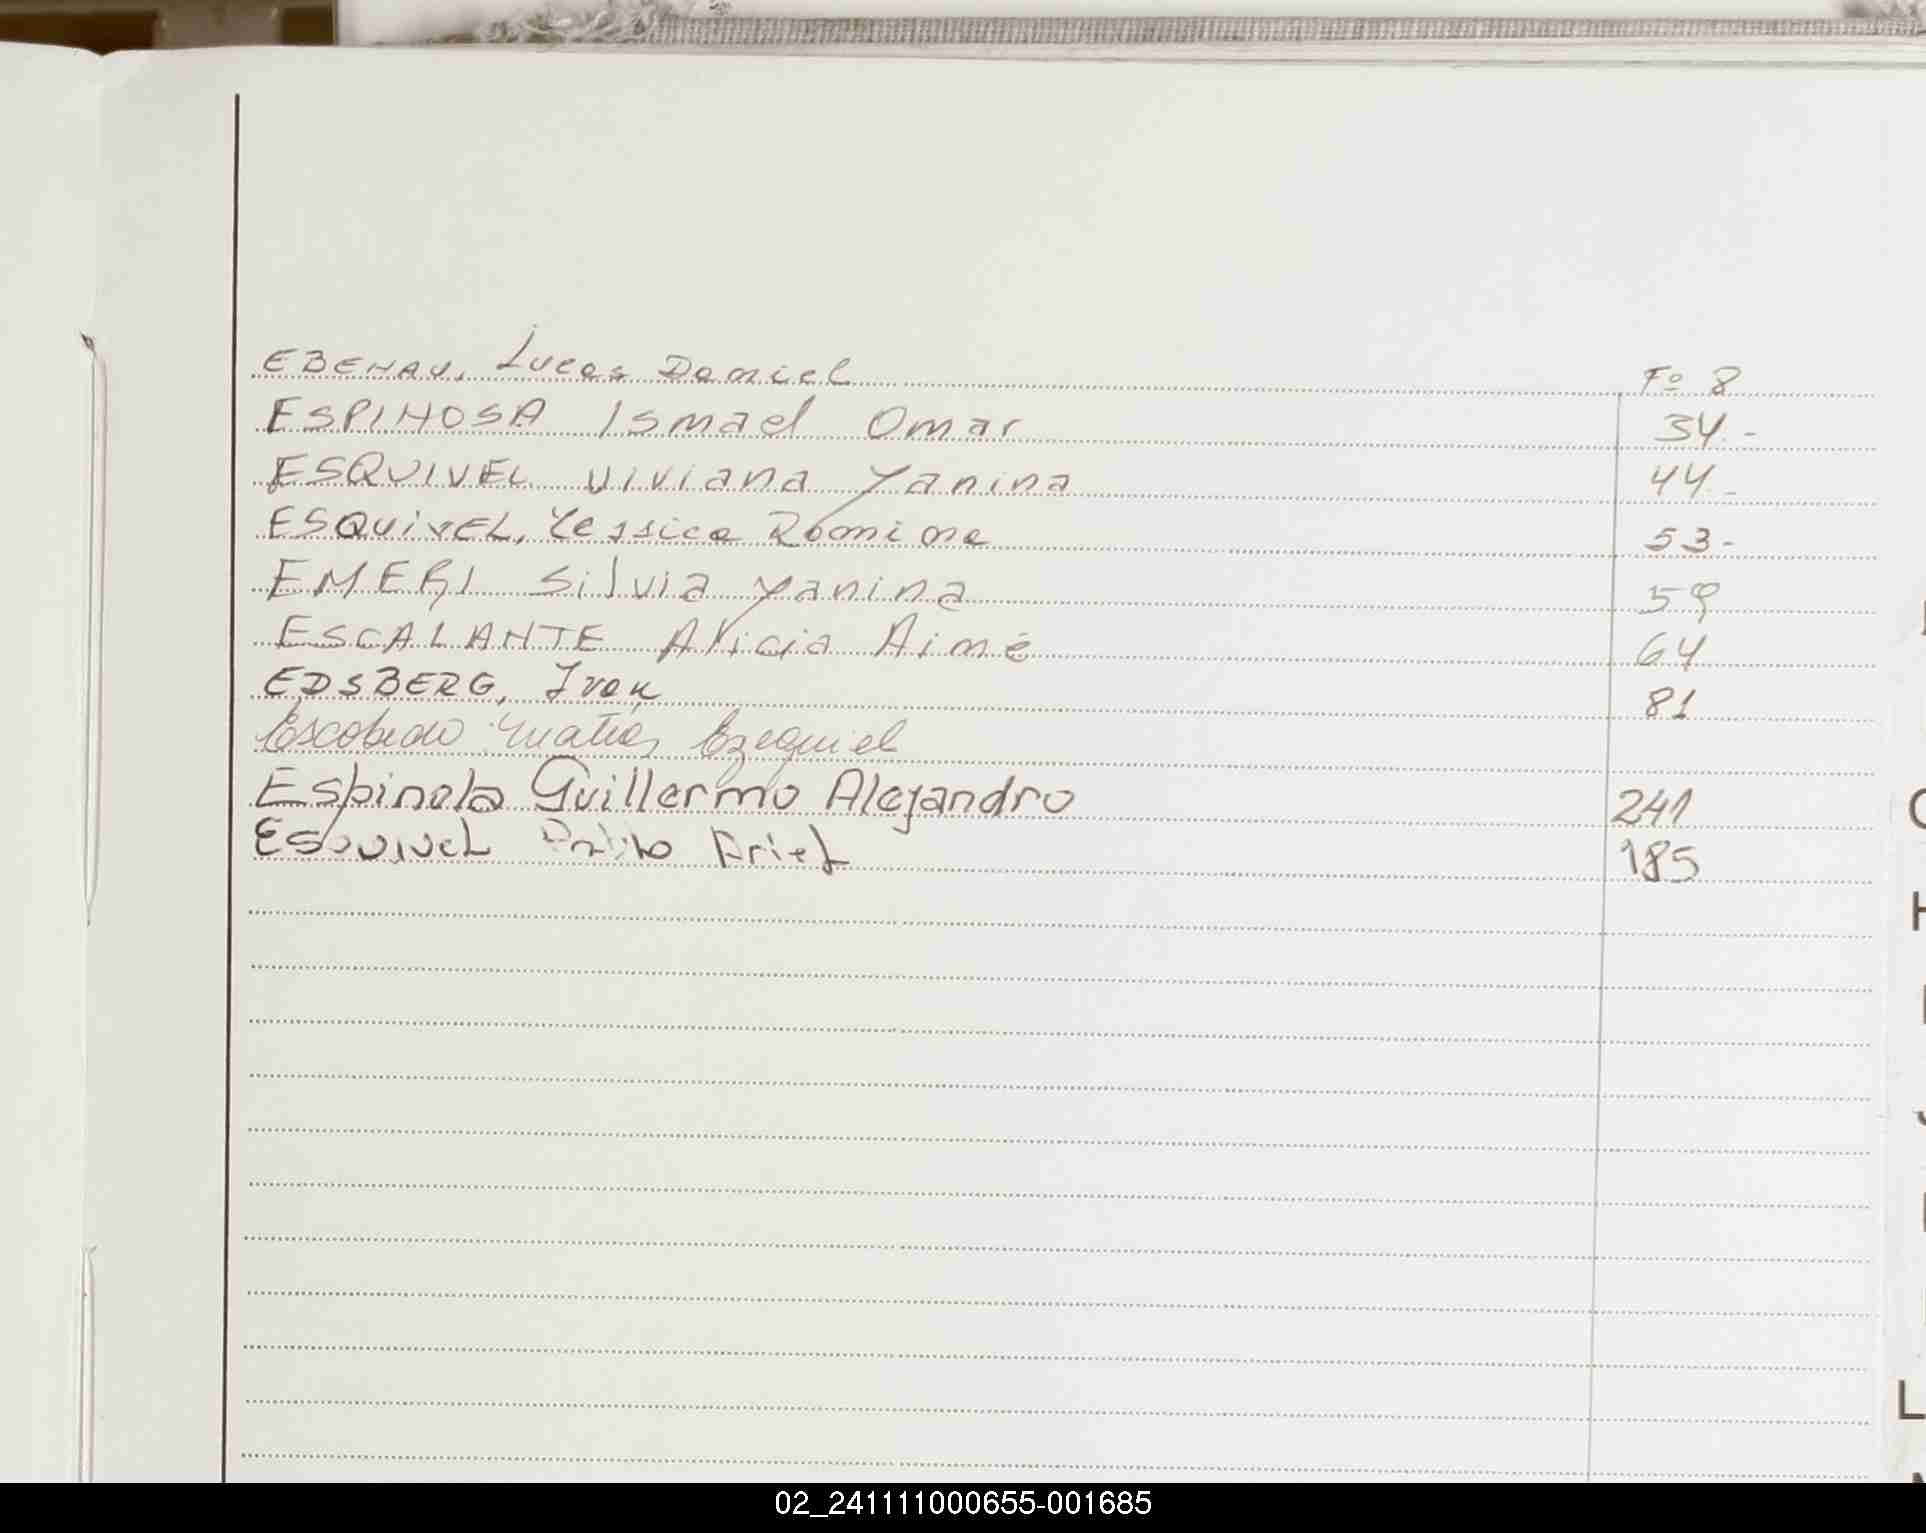 EBENAU, Lucas Daniel Fº 8
ESPINOSA Ismael Omar 34.-
ESQUIVEL Viviana Yanina 44.-
ESQUIVEL, Yessica Romina 53-
EMERI Silvia Yanina 59
ESCALANTE Alicia Aimé 64
EDSBERG, Ivan 81
Escobedo Matías Ezequiel
Espinola Guillermo Alejandro 241
ESQUIVEL Pablo Ariel 185
02_241111000655-001685